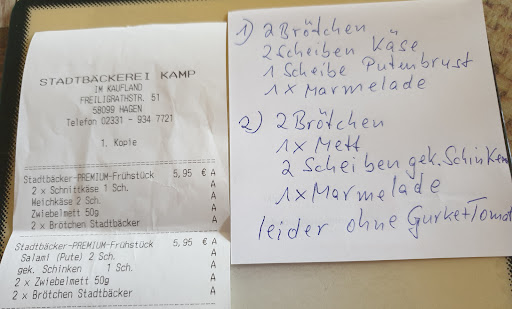 STADTBÄCKEREI KAMP
IM KAUFLAND
FREILIGRATHSTR. 51
58099 HAGEN
Telefon 02331 - 934 7721
1. Kopie
Stadtbäcker-PREMIUM-Frühstück 5,95 € A
2 x Schnittkäse 1 Sch. A
Weichkäse 2 Sch. A
Zwiebelmett 50g A
2 x Brötchen Stadtbäcker A
Stadtbäcker-PREMIUM-Frühstück 5,95 € A
Salami (Pute) 2 Sch. A
gek. Schinken 1 Sch. A
2 x Zwiebelmett 50g A
2 x Brötchen Stadtbäcker A
1) 2 Brötchen
2 Scheiben Käse
1 Scheibe Putenbrust
1 x Marmelade
2) 2 Brötchen
1 x Mett
2 Scheiben gek. Schinken
1 x Marmelade
leider ohne Gurke+Tomat